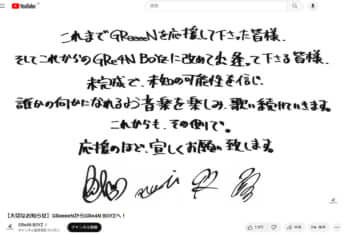 YouTube
検索
これまでGReeeeNを応援して下さった皆様、
そしてこれからのGRe4N BOYZに改めて出逢って下さる皆様、
未完成で、未知の可能性を信じ、
誰かの何かになれるよう音楽を楽しみ、歌い続けていきます。
これからも、その側で。
応援のほど、宜しくお願い致します。
【大切なお知らせ】GReeeeNからGRe4N BOYZへ！
GRe4N BOYZ
チャンネル登録
共有